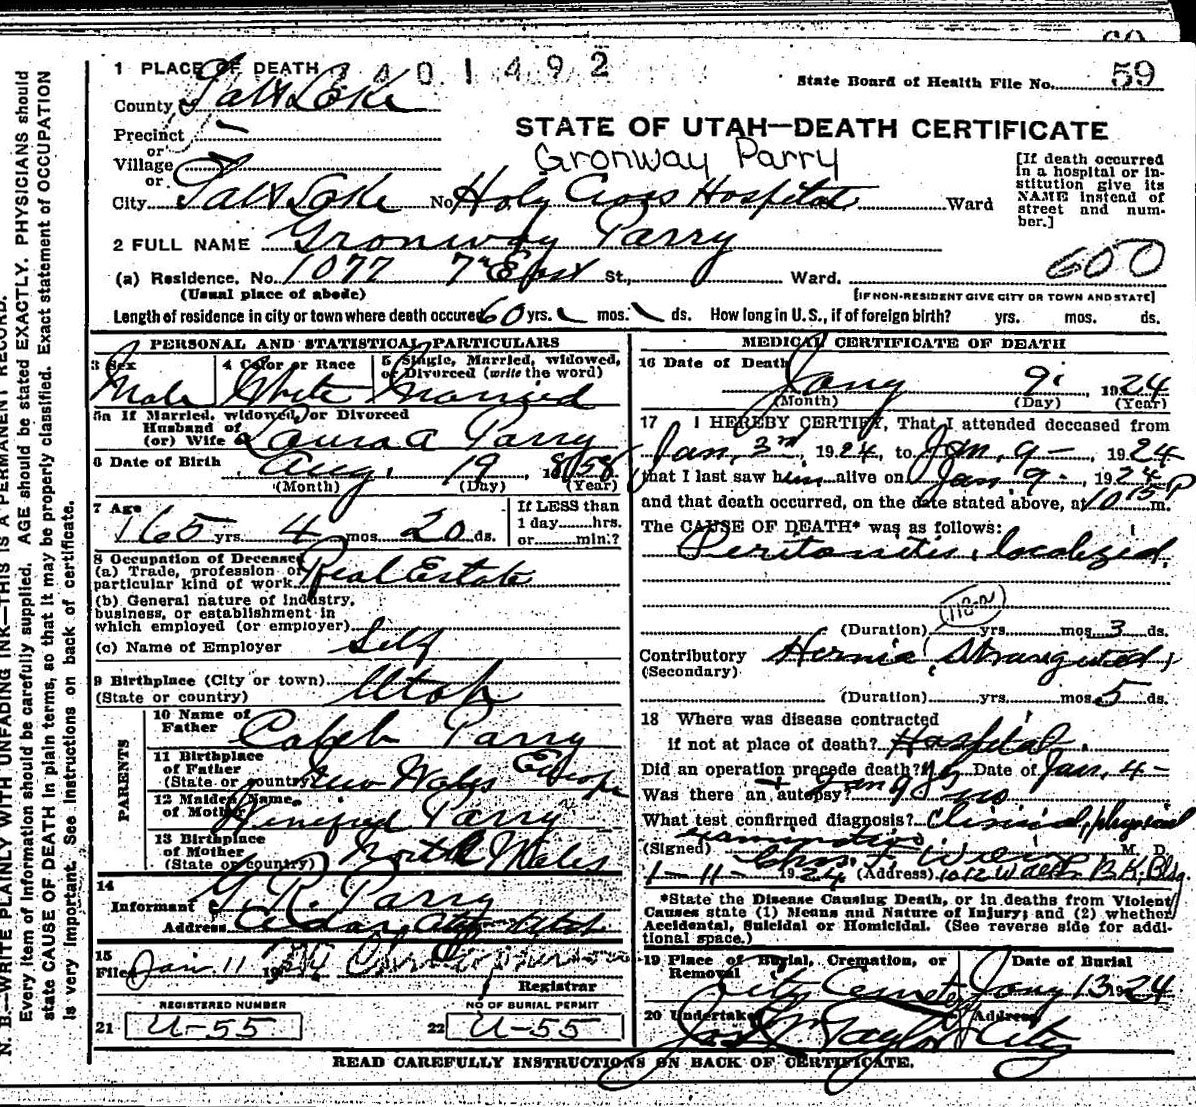 60
2401492
1 PLACE OF DEATH
State Board of Health File No. 59
County Salt Lake
STATE OF UTAH—DEATH CERTIFICATE
Precinct
or
Gronway Parry
Village
or
[If death occurred in a hospital or institution give its NAME instead of street and number.]
City Salt Lake No. Holy Cross Hospital Ward
2 FULL NAME Gronway Parry
600
(a) Residence. No. 1077 7th East St., Ward.
(Usual place of abode)
[IF NON-RESIDENT GIVE CITY OR TOWN AND STATE]
Length of residence in city or town where death occured 60 yrs. mos. ds. How long in U.S., if of foreign birth? yrs. mos. ds.
PERSONAL AND STATISTICAL PARTICULARS
3 Sex Male
4 Color or Race White
5 Single, Married, widowed, or Divorced (write the word) Married
5a If Married, widowed, or Divorced
Husband of
(or) Wife Laura A Parry
6 Date of Birth Aug. 19 1858
(Month) (Day) (Year)
7 Age 65 yrs. 4 mos. 20 ds.
If LESS than
1 day......hrs.
or......min.?
8 Occupation of Deceased
(a) Trade, profession or
particular kind of work Real Estate
(b) General nature of industry,
business, or establishment in
which employed (or employer)
(c) Name of Employer Self
9 Birthplace (City or town)
(State or country) Utah
PARENTS
10 Name of Father Caleb Parry
11 Birthplace of Father (State or country) Wales Europe
12 Maiden Name of Mother Winefred Parry
13 Birthplace of Mother (State or country) North Wales
14
Informant G. R. Parry
Address Cedar City Utah
15
Filed Jan. 11 1924
Registrar
REGISTERED NUMBER
21 U-55
NO OF BURIAL PERMIT
22 U-55
MEDICAL CERTIFICATE OF DEATH
16 Date of Death Jany 9 1924
(Month) (Day) (Year)
17 I HEREBY CERTIFY, That I attended deceased from
Jan. 3rd, 1924, to Jan. 9-, 1924
that I last saw him alive on Jan. 9-, 1924
and that death occurred, on the date stated above, at 10 15 P m.
The CAUSE OF DEATH* was as follows:
Peritonitis, localized.
(Duration) yrs. mos. 3 ds.
Contributory Hernia, Strangulated,
(Secondary)
(Duration) yrs. mos. 5 ds.
18 Where was disease contracted
if not at place of death? Hospital.
Did an operation precede death? Yes Date of Jan. 4-
Was there an autopsy? no
What test confirmed diagnosis? Clinical, physical
examination
(Signed) M. D.
1-11-1924 (Address) 1012 Walker BK. Bldg.
*State the Disease Causing Death, or in deaths from Violent
Causes state (1) Means and Nature of Injury; and (2) whether
Accidental, Suicidal or Homicidal. (See reverse side for addi-
tional space.)
19 Place of Burial, Cremation, or Removal City Cemetery
Date of Burial Jany 13 1924
20 Undertaker Taylor
Address City
READ CAREFULLY INSTRUCTIONS ON BACK OF CERTIFICATE.
N. B.—WRITE PLAINLY WITH UNFADING INK—THIS IS A PERMANENT RECORD.
Every item of information should be carefully supplied. AGE should be stated EXACTLY. PHYSICIANS should
state CAUSE OF DEATH in plain terms, so that it may be properly classified. Exact statement of OCCUPATION
is very important. See instructions on back of certificate.